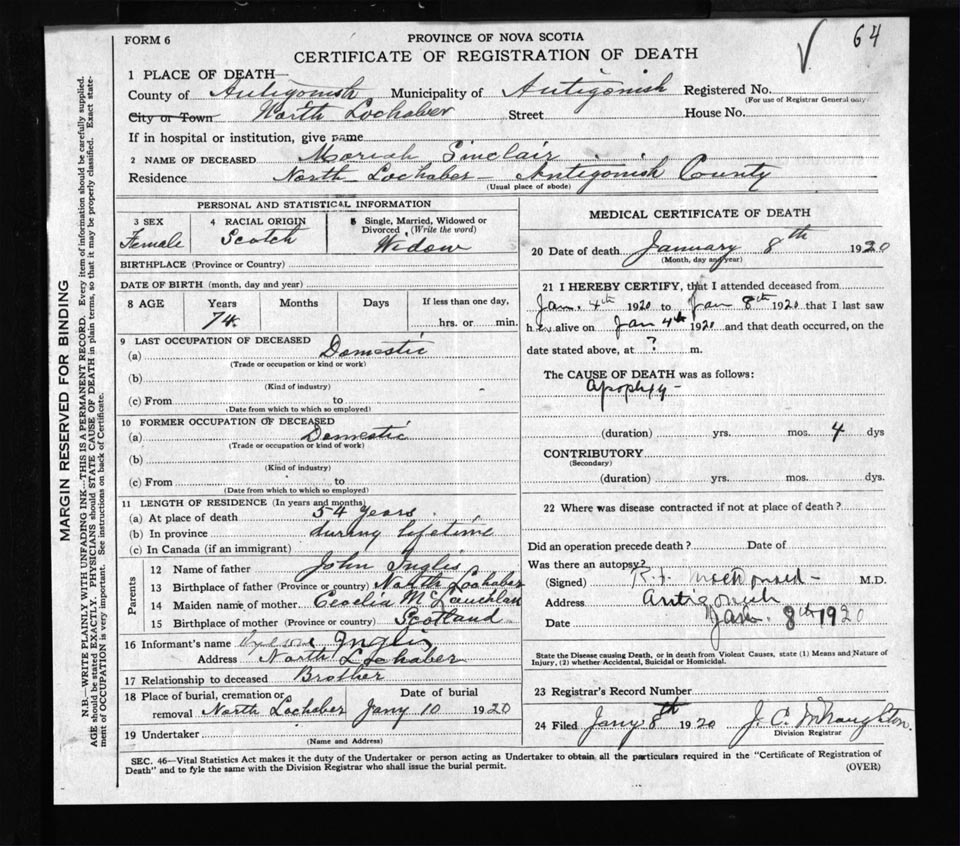 64
FORM 6
PROVINCE OF NOVA SCOTIA
CERTIFICATE OF REGISTRATION OF DEATH
MARGIN RESERVED FOR BINDING
N.B.—WRITE PLAINLY WITH UNFADING INK—THIS IS A PERMANENT RECORD. Every item of information should be carefully supplied.
AGE should be stated EXACTLY. PHYSICIANS should STATE CAUSE OF DEATH in plain terms, so that it may be properly classified. Exact state-
ment of OCCUPATION is very important. See instructions on back of Certificate.
1 PLACE OF DEATH—
County of Antigonish Municipality of Antigonish Registered No.
(For use of Registrar General only)
City or Town North Lochaber Street House No.
If in hospital or institution, give name
2 NAME OF DECEASED Moriah Sinclair
Residence North Lochaber - Antigonish County
(Usual place of abode)
PERSONAL AND STATISTICAL INFORMATION
3 SEX Female
4 RACIAL ORIGIN Scotch
5 Single, Married, Widowed or Divorced (Write the word) Widow
BIRTHPLACE (Province or Country)
DATE OF BIRTH (month, day and year)
8 AGE Years Months Days If less than one day,
74 hrs. or min.
9 LAST OCCUPATION OF DECEASED
(a) Domestic
(Trade or occupation or kind or work)
(b)
(Kind of industry)
(c) From to
(Date from which to which so employed)
10 FORMER OCCUPATION OF DECEASED
(a) Domestic
(Trade or occupation or kind of work)
(b)
(Kind of industry)
(c) From to
(Date from which to which so employed)
11 LENGTH OF RESIDENCE (In years and months)
(a) At place of death 54 years
(b) In province during lifetime
(c) In Canada (if an immigrant)
Parents
12 Name of father John Inglis
13 Birthplace of father (Province or country) North Lochaber
14 Maiden name of mother Cecelia McLauchlan
15 Birthplace of mother (Province or country) Scotland
16 Informant's name Inglis
Address North Lochaber
17 Relationship to deceased Brother
18 Place of burial, cremation or Date of burial
removal North Lochaber Jany 10 1920
19 Undertaker
(Name and Address)
MEDICAL CERTIFICATE OF DEATH
20 Date of death January 8th 1920
(Month, day and year)
21 I HEREBY CERTIFY, that I attended deceased from
Jan. 4th 1920 to Jan 8th 1920 that I last saw
her alive on Jan 4th 1920 and that death occurred, on the
date stated above, at ? m.
The CAUSE OF DEATH was as follows:
Apoplexy -
(duration) yrs. mos. 4 dys
CONTRIBUTORY
(Secondary)
(duration) yrs. mos. dys.
22 Where was disease contracted if not at place of death?
Did an operation precede death? Date of
Was there an autopsy?
(Signed) McDonald - M.D.
Address Antigonish
Date Jan. 8th 1920
State the Disease causing Death, or in death from Violent Causes, state (1) Means and Nature of
Injury, (2) whether Accidental, Suicidal or Homicidal.
23 Registrar's Record Number
24 Filed Jany 8th 1920 J. C. McNaughton.
Division Registrar
SEC. 46—Vital Statistics Act makes it the duty of the Undertaker or person acting as Undertaker to obtain all the particulars required in the "Certificate of Registration of
Death" and to fyle the same with the Division Registrar who shall issue the burial permit.
(OVER)